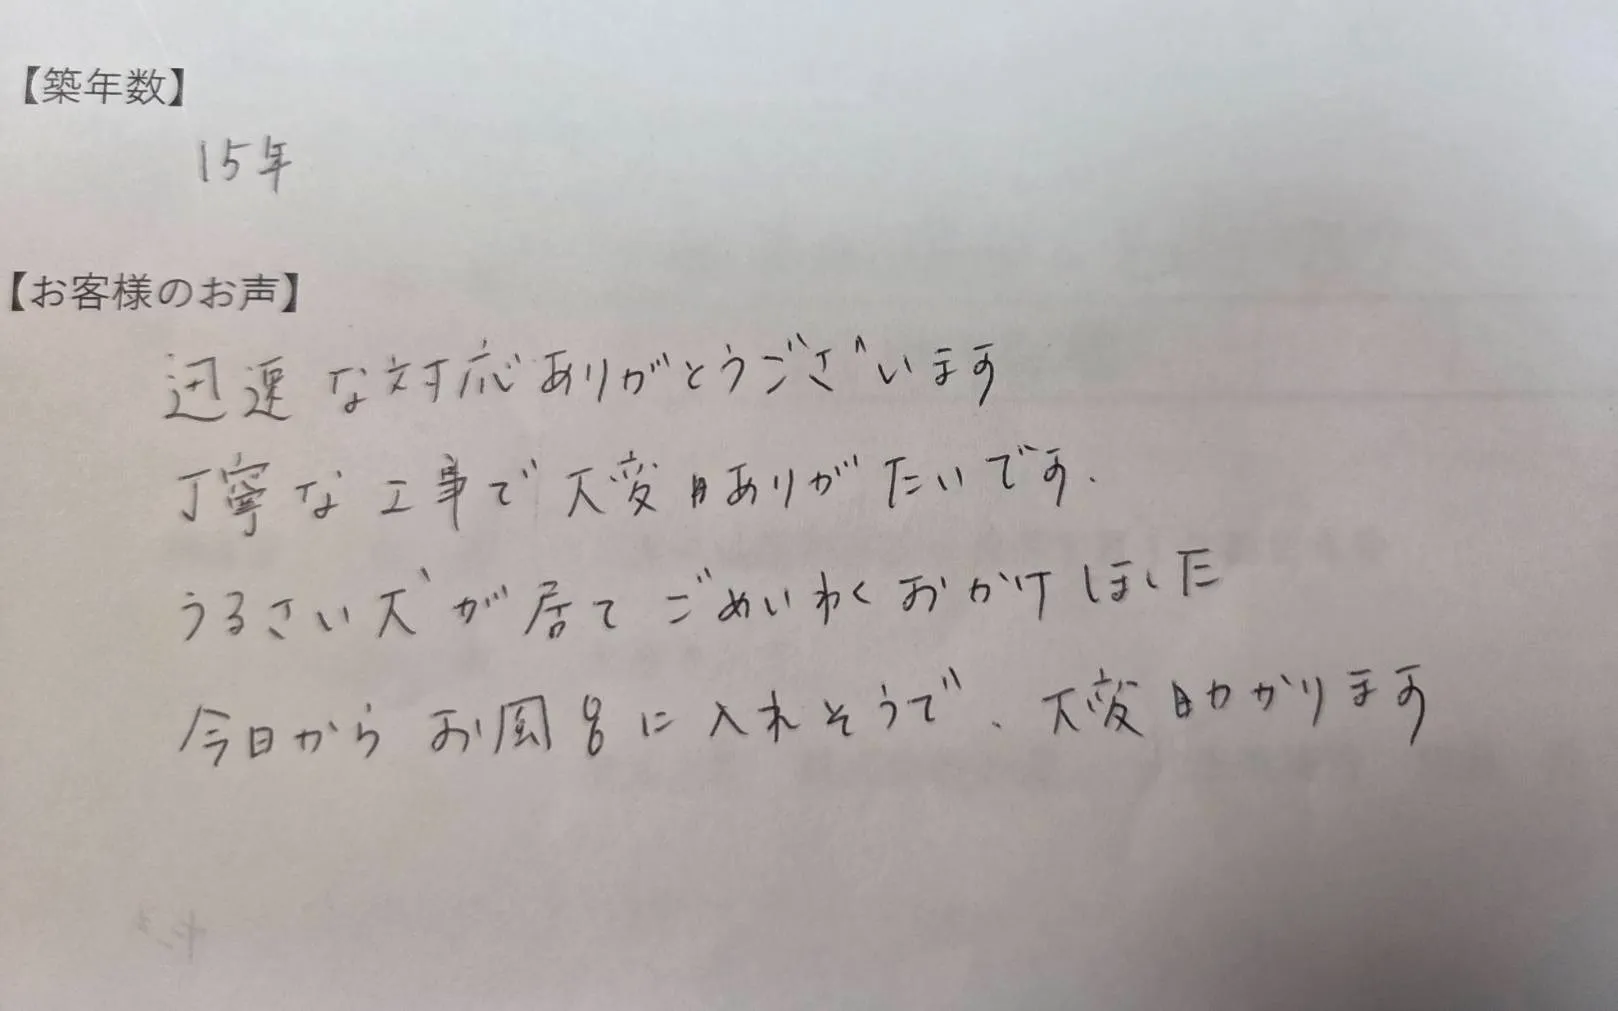 【築年数】
15年
【お客様のお声】
迅速な対応ありがとうございます
丁寧な工事で大変ありがたいです.
うるさい犬が居てごめいわくおかけしました
今日からお風呂に入れそうで、大変助かります